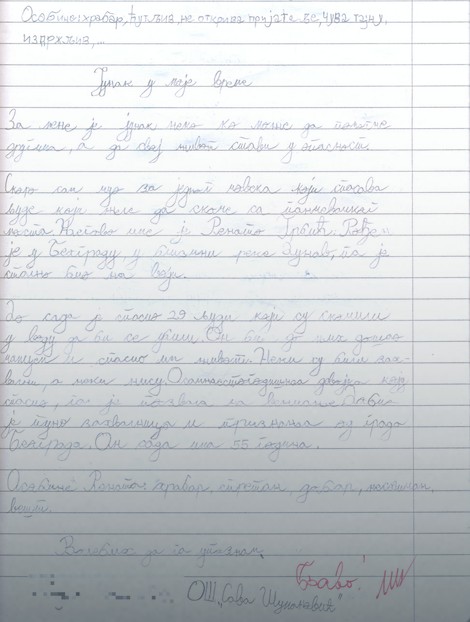 Особине: храбар, ћутљив, не открива пријатеље, чува тајну,
издржљив,...
Јунак у моје време
За мене је јунак неко ко може да помогне
другима, а да свој живот стави у опасност.
Скоро сам чуо за једног човека који спасава
људе који желе да скоче са панчевачког
моста. Његово име је Ренато Грбић. Рођен
је у Београду, у близини реке Дунав, па је
стално био на води.
До сада је спасио 29 људи који су скочили
у воду да би се убили. Он би до њих дошао
чамцем и спасио им живот. Неки су били зах-
вални, а неки нису. Осамнаестогодишња девојка коју
спасио, га је позвала на венчање. Добио
је пуно захвалница и признања од града
Београда. Он сада има 55 година.
Особине Рената: храбар, спретан, добар, пожртвован,
вешт.
Волео бих да га упознам.
Браво!
ОШ „Сава Шумановић"